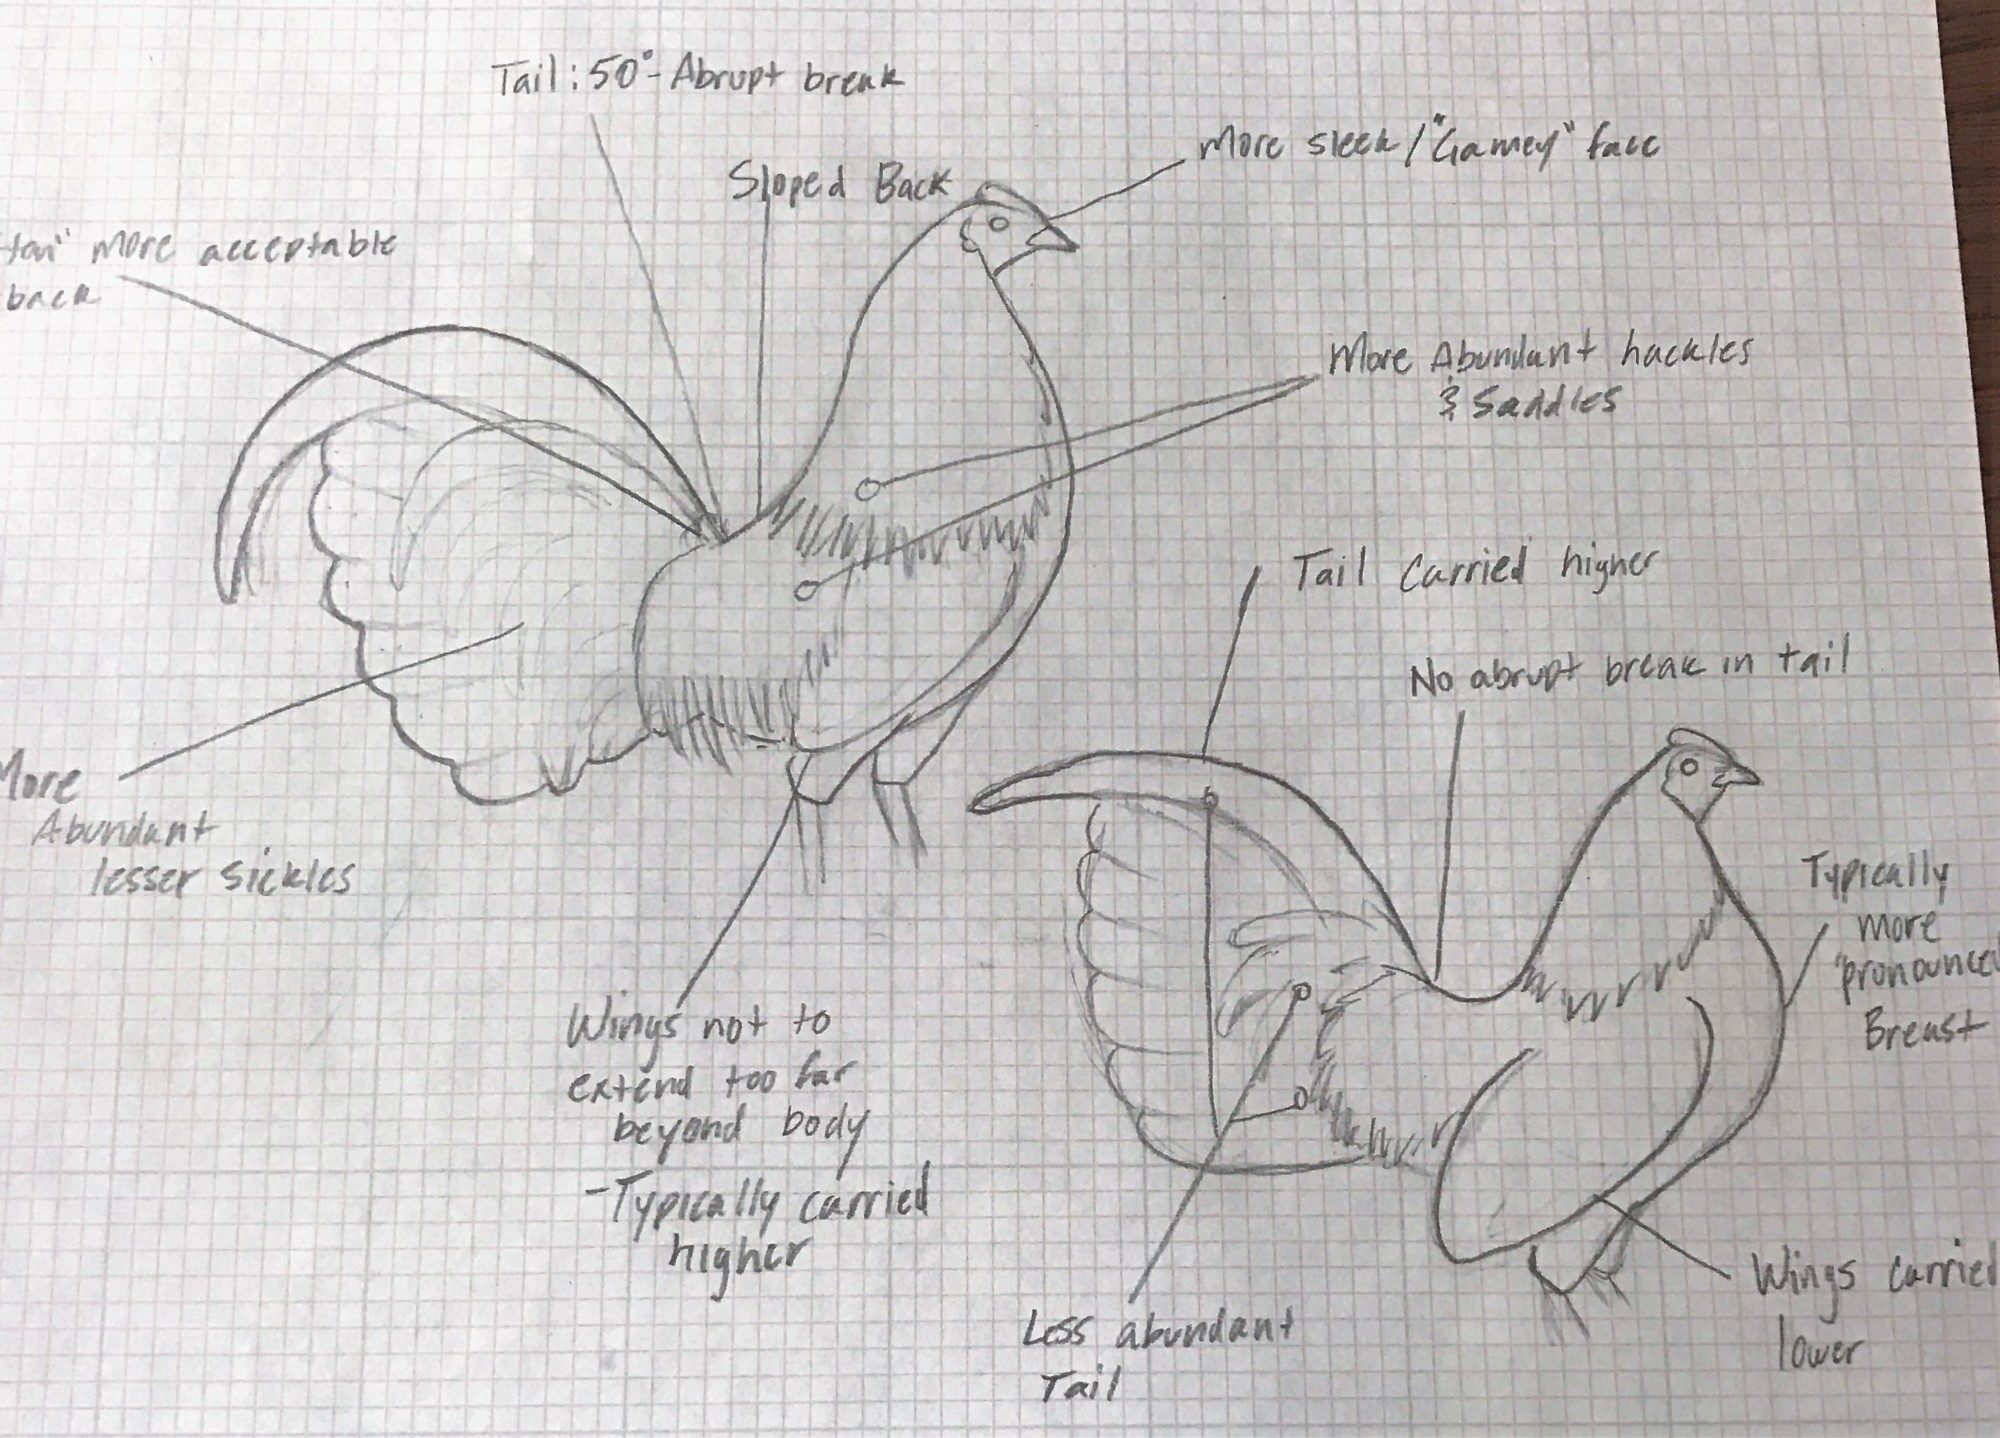 Tail: 50° - Abrupt break
Sloped Back
More sleek / "Gamey" face
more acceptable
back
More Abundant hackles
& Saddles
Tail Carried higher
No abrupt break in tail
More
Abundant
lesser sickles
Typically
more
pronounced
Breast
Wings not to
extend too far
beyond body
- Typically carried
higher
Less abundant
Tail
Wings carried
lower